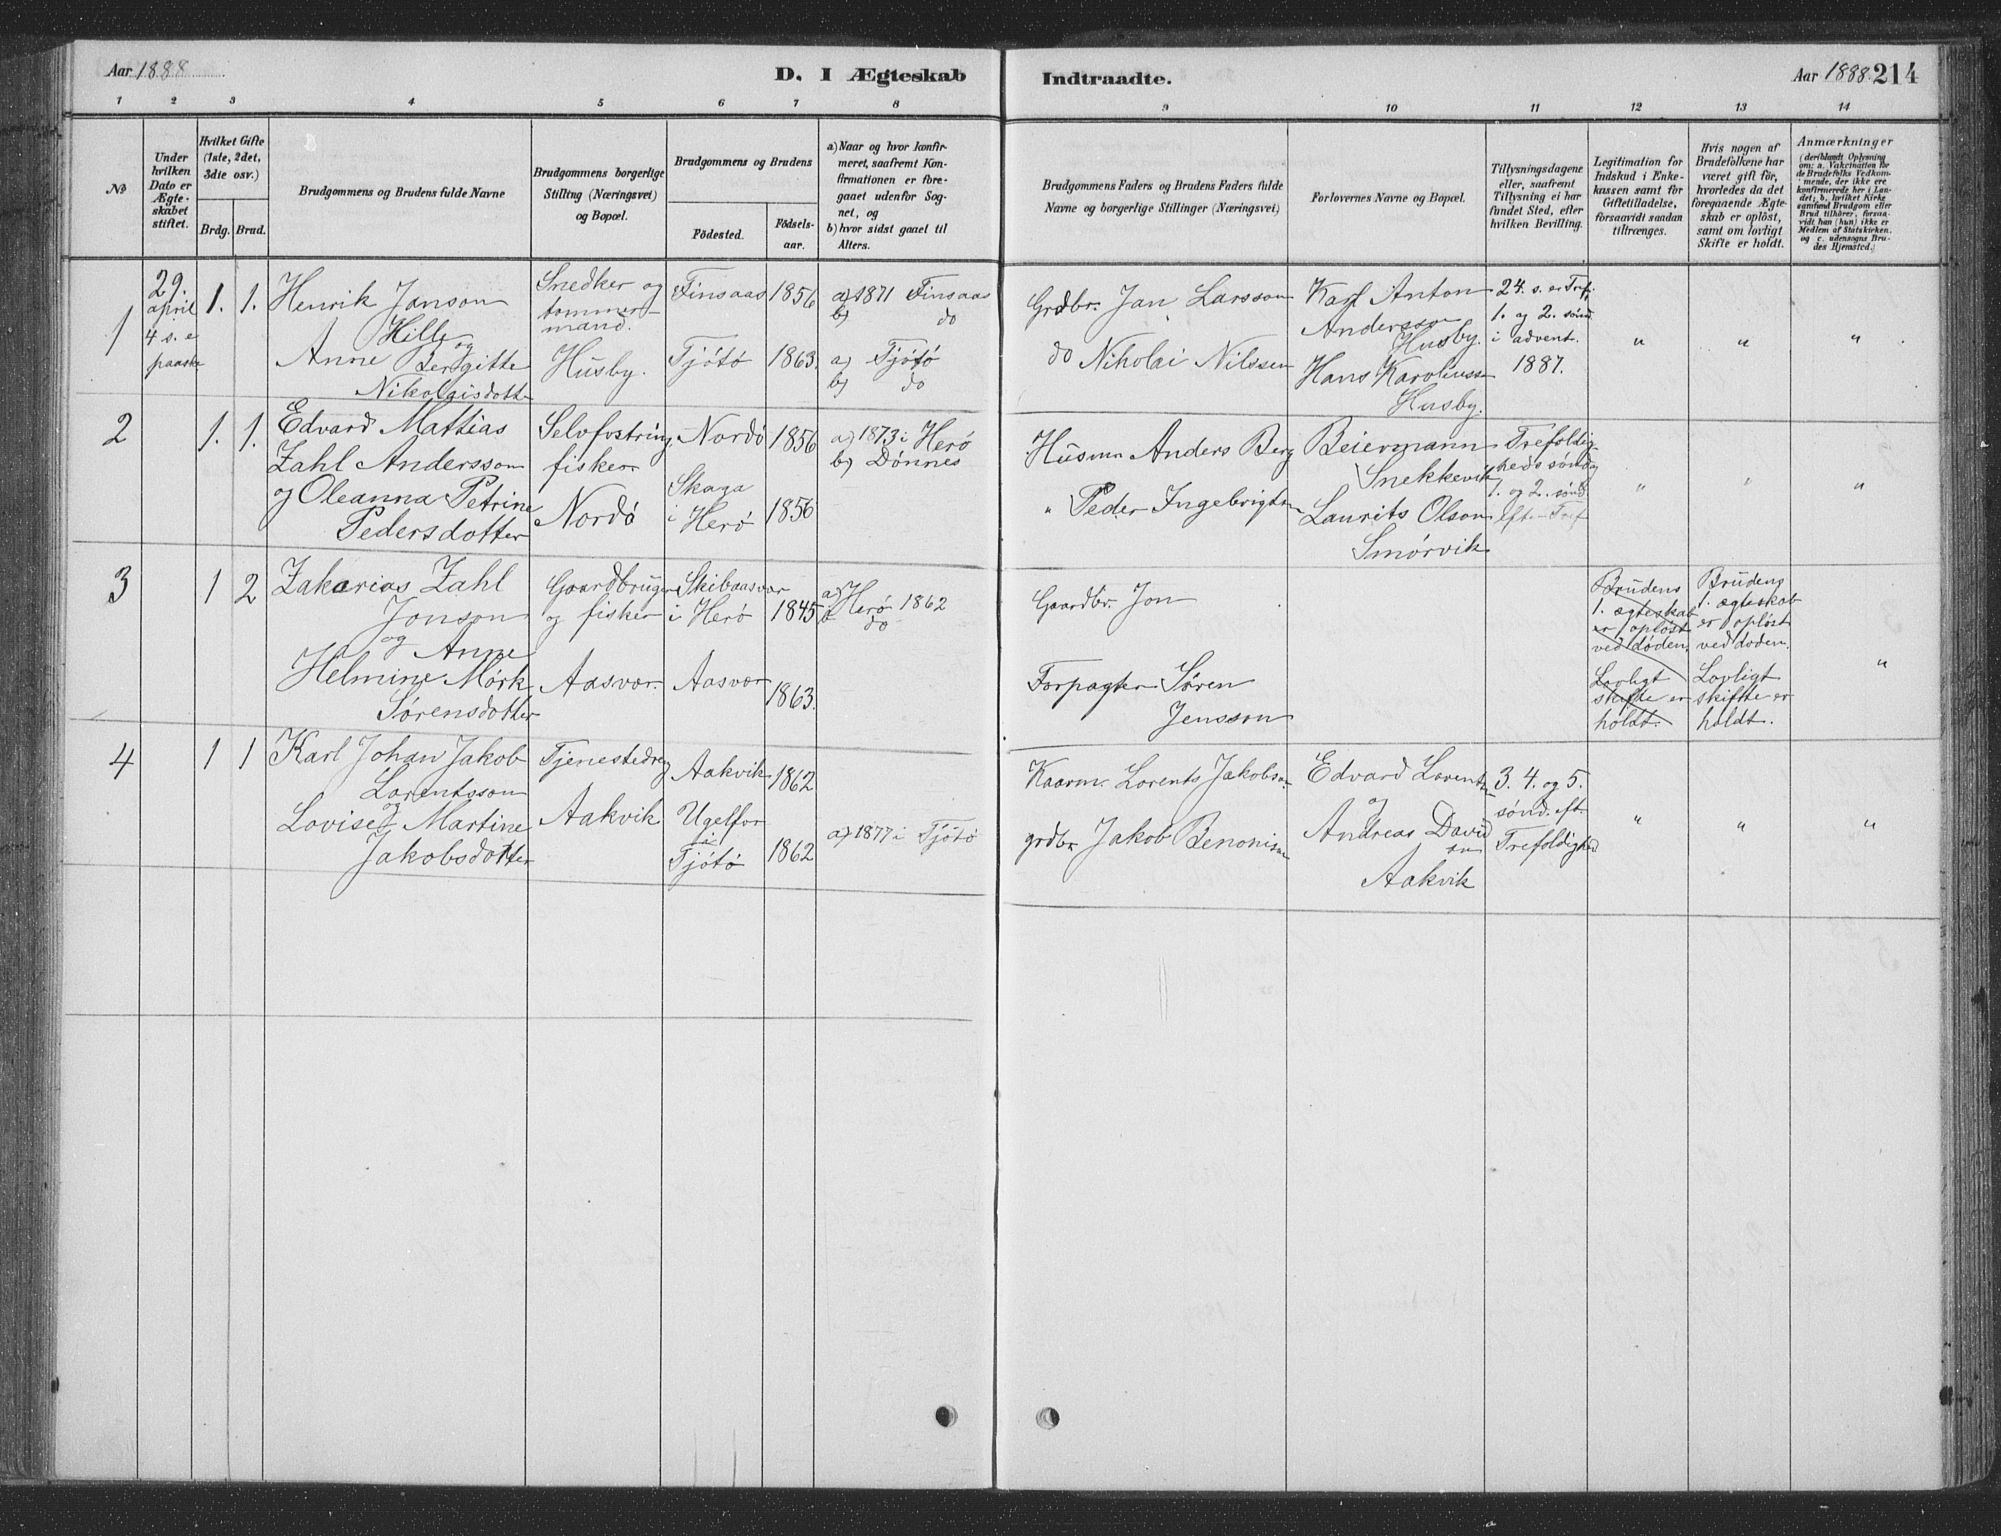 Aar 1888
D. I Ægteskab
Indtraadte.
Aar 1888. 214
1 2 3 4 5 6 7 8
9 10 11 12 13 14
No
Under hvilken Dato er Ægteskabet stiftet.
Hvilket Gifte (1ste, 2det, 3die osv.)
Brdg. Brud.
Brudgommens og Brudens fulde Navne
Brudgommens borgerlige Stilling (Næringsvei) og Bopæl.
Brudgommens og Brudens
Födested.
Födselsaar.
a) Naar og hvor konfirmeret, saafremt Konfirmationen er foregaaet udenfor Sognet, og
b) hvor sidst gaaet til Alters.
Brudgommens Faders og Brudens Faders fulde Navne og borgerlige Stillinger (Næringsvei)
Forlovernes Navne og Bopæl.
Tillysningsdagene eller, saafremt Tillysning ei har fundet Sted, efter hvilken Bevilling.
Legitimation for Indskud i Enkekassen samt før Giftetilladelse, forsaavidt saadan tiltrænges.
Hvis nogen af Brudefolkene har været gift før, hvorledes da det foregaaende Ægteskab er oplöst, samt om lovligt Skifte er holdt.
Anmærkninger
(deriblandt Oplysning om: a. Vakcination for de Brudefolks Vedkommende, der ikke ere konfirmerede her i Landet; b. hvilket Kirkesamfund Brudgom eller Brud tilhører, forsaavidt han (hun) ikke er Medlem af Statskirken, og c. udensogns Brudes Hjemsted.)
1
29. april
4 s. e paaske
1. 1.
Henrik Janson
Hille
og
Anne Bergitte
Nikolaisdotter
Snedker og
tommermand.
Husby.
Finsaas 1856
Tjötö 1863.
a) 1871 Finsaas
b) do
a) Tjötö
b) do
Grdbr. Jan Larsson
do Nikolai Nilssen
Karl Anton
Andersson
Husby.
Hans Karoliuss
Husby.
24. s. e. Tref.
1. og 2. sönd.
i advent.
1887.
" " "
2
1. 1.
Edvard Mattias
Zahl Andersson
og Oleanna Petrine
Pedersdotter
Selvfostring
fisker
Nordö
Nordö 1856
Skaga
i Herö 1856
a) 1873 i Herö
b) Dönnes
Husm Anders Berg
" Peder Ingebrigts
Beiermann
Snekkevik
Laurits Olson
Smörvik
Trefoldigheds sönd og
1. og 2. sönd.
efter Tref
" " "
3
1 2
Zakarias Zahl
Jonson
og Anne
Helmine Mörk
Sörensdotter
Gaardbruger
og fisker
Aasvær.
Skibaasvær
i Herö 1845
Aasvær 1863.
a) Herö 1862
b do
Gaardbr. Jon
Forpagter Sören
Jensson
Brudens
1. ægteskab
er oplöst
ved döden.
Lovligt
skifte er
holdt.
Brudens
1. ægteskab
er oplöst
ved döden.
Lovligt
skifte er
holdt.
"
4
1 1
Karl Johan Jakob
Lorentsson
og
Lovise Martine
Jakobsdotter
Tjenestedreng
Aakvik
Aakvik 1862
Ugelfor
i
Tjötö 1862
a) 1877 i Tjötö
Kaarm. Lorents Jakobson
grdbr Jakob Benonisn
Edvard Lorents
og
Andreas David
sn
Aakvik
3. 4. og 5.
sönd. eft.
Trefoldighed
" " "